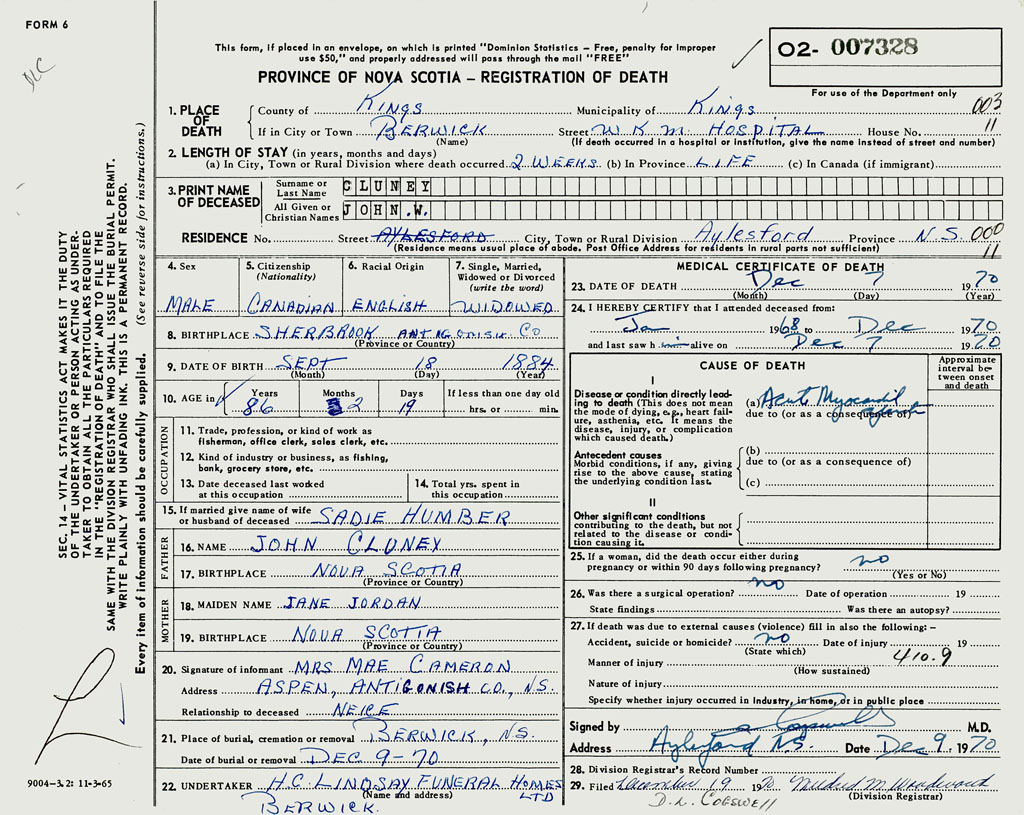 FORM 6
NC
This form, if placed in an envelope, on which is printed "Dominion Statistics – Free, penalty for improper
use $50," and properly addressed will pass through the mail "FREE"
O2- 007328
PROVINCE OF NOVA SCOTIA – REGISTRATION OF DEATH
For use of the Department only
003
11
1. PLACE OF DEATH
County of Kings Municipality of Kings
If in City or Town BERWICK Street W K M HOSPITAL House No.
(Name) (If death occurred in a hospital or institution, give the name instead of street and number)
2. LENGTH OF STAY (in years, months and days)
(a) In City, Town or Rural Division where death occurred 2 WEEKS (b) In Province LIFE (c) In Canada (if immigrant)
3. PRINT NAME OF DECEASED
Surname or Last Name CLUNEY
All Given or Christian Names JOHN .W.
RESIDENCE No. Street AYLESFORD City, Town or Rural Division Aylesford Province N.S. 000
11
(Residence means usual place of abode. Post Office Address for residents in rural parts not sufficient)
4. Sex
MALE
5. Citizenship (Nationality)
CANADIAN
6. Racial Origin
ENGLISH
7. Single, Married, Widowed or Divorced (write the word)
WIDOWED
8. BIRTHPLACE SHERBROOK ANTIGONISH CO
(Province or Country)
9. DATE OF BIRTH SEPT 18 1884
(Month) (Day) (Year)
10. AGE in Years 86 Months 2 Days 19 If less than one day old hrs. or min.
OCCUPATION
11. Trade, profession, or kind of work as
fisherman, office clerk, sales clerk, etc.
12. Kind of industry or business, as fishing,
bank, grocery store, etc.
13. Date deceased last worked at this occupation
14. Total yrs. spent in this occupation
15. If married give name of wife or husband of deceased SADIE HUMBER
FATHER
16. NAME JOHN CLUNEY
17. BIRTHPLACE NOVA SCOTIA
(Province or Country)
MOTHER
18. MAIDEN NAME JANE JORDAN
19. BIRTHPLACE NOVA SCOTIA
(Province or Country)
20. Signature of informant MRS MAE CAMERON
Address ASPEN, ANTIGONISH CO., N.S.
Relationship to deceased NEICE
21. Place of burial, cremation or removal BERWICK, N.S.
Date of burial or removal DEC 9-70
22. UNDERTAKER H.C. LINDSAY FUNERAL HOMES LTD
(Name and address)
BERWICK.
MEDICAL CERTIFICATE OF DEATH
23. DATE OF DEATH Dec 7 1970
(Month) (Day) (Year)
24. I HEREBY CERTIFY that I attended deceased from:
Jan 1968 to Dec 1970
and last saw him alive on Dec 7 1970
CAUSE OF DEATH
Approximate interval between onset and death
I
Disease or condition directly leading to death (This does not mean the mode of dying, e.g., heart failure, asthenia, etc. It means the disease, injury, or complication which caused death.)
(a) Acute Myocardial
due to (or as a consequence of)
Antecedent causes
Morbid conditions, if any, giving rise to the above cause, stating the underlying condition last.
(b)
due to (or as a consequence of)
(c)
II
Other significant conditions
contributing to the death, but not related to the disease or condition causing it.
25. If a woman, did the death occur either during
pregnancy or within 90 days following pregnancy? no
(Yes or No)
26. Was there a surgical operation? no Date of operation 19
State findings Was there an autopsy?
27. If death was due to external causes (violence) fill in also the following: –
Accident, suicide or homicide? no Date of injury 19
(State which)
410.9
Manner of injury
(How sustained)
Nature of injury
Specify whether injury occurred in industry, in home, or in public place
Signed by M.D.
Address Aylesford NS. Date Dec 9 1970
28. Division Registrar's Record Number
29. Filed December 19 1970 Mildred M Woodworth
(Division Registrar)
D. L. COGSWELL
SEC. 14 – VITAL STATISTICS ACT MAKES IT THE DUTY
OF THE UNDERTAKER OR PERSON ACTING AS UNDER-
TAKER TO OBTAIN ALL THE PARTICULARS REQUIRED
IN THE "REGISTRATION OF DEATH" AND TO FILE THE
SAME WITH THE DIVISION REGISTRAR WHO SHALL ISSUE THE BURIAL PERMIT.
WRITE PLAINLY WITH UNFADING INK. THIS IS A PERMANENT RECORD.
Every item of information should be carefully supplied. (See reverse side for instructions.)
9004–3.2: 11-3-65